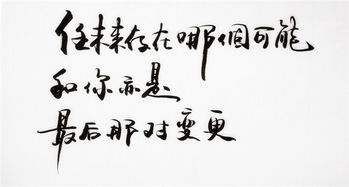 任未来存在哪個可能
和你亦是
最后那对变更